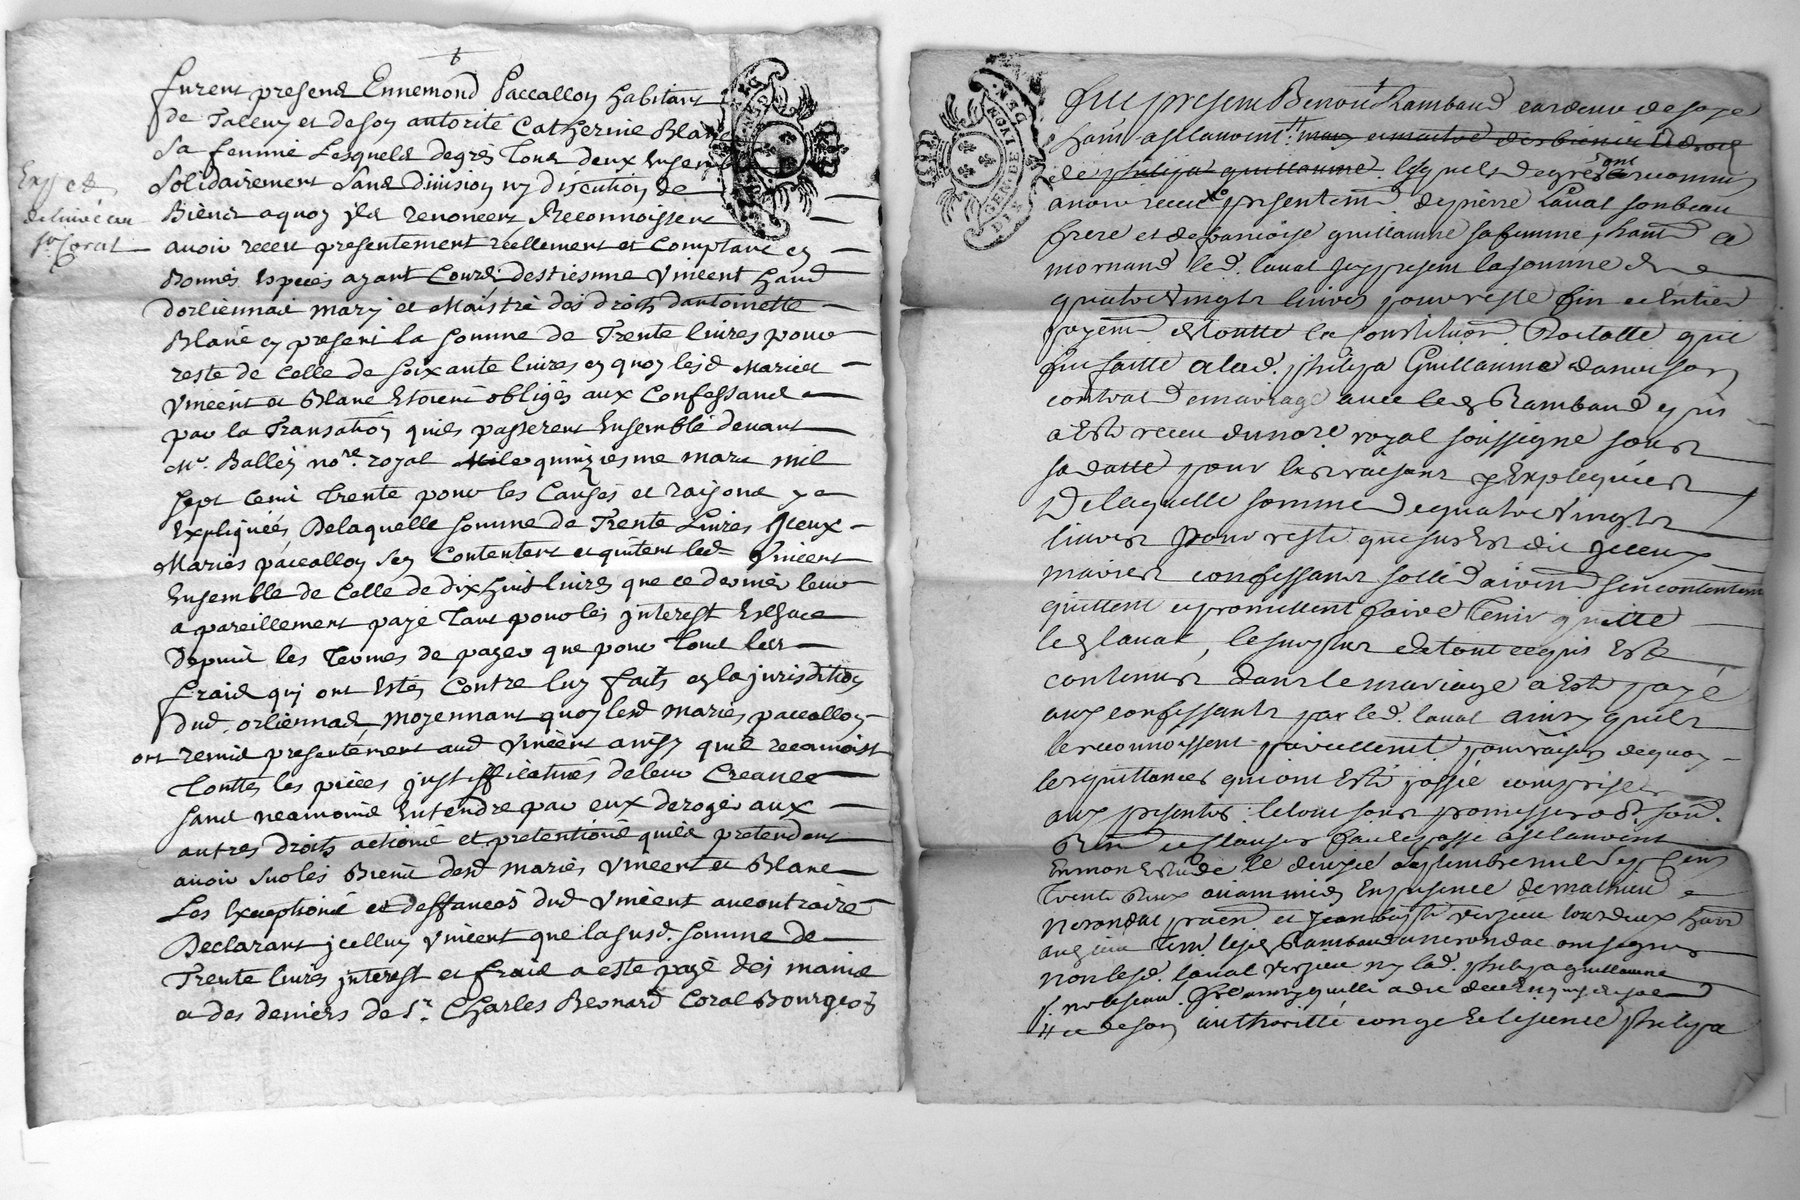 furent presens Ennemond Paccallon habitant
de Talluy et de son autorité Catherine Blanc
sa femme Lesquels de grés tous deux ensemble
solidairement sans division ny discution de
Biens a quoy ils renoncent Reconnoissent
avoir receu presentement reellement et comptant en
Bonnes Especes ayant Cours d'estienne Vincent hans
dorliennas mary et Maistre des droits d'antoinette
Blanc y present la somme de Trente livres pour
reste de Celle de soixante livres en quoy lesd Mariés
Vincent et Blanc Etoient obligés aux Confessans
par la Transation quils passerent Ensemble devant
Me. Balley nore. royal le quinziesme mars mil
sept cent trente pour les Causes et raisons y
Expliquées, De laquelle somme de Trente Livres Jceux
Mariés paccallon sen Contentent et quittent led Vincent
Ensemble de Celle de dix huit livres que ce dernier leur
a pareillement payé tant pour les jnterest
Depuis les Termes de payer que pour tous les
fraid quj ont Estés Contre luy faits en la jurisdition
dud. orliennas, moyennant quoy lesd mariés paccallon
ont remis presentement aud Vincent ainsy quil reconnoist
touttes les pieces justifficatives de leur Creance
sans neamoins Entendre par eux deroger aux
autres droits actions et pretentions quils pretendent
avoir sur les Biens desd mariés Vincent et Blanc
Les Exceptions et deffances dud Vincent au contraire
Declarant jcelluy Vincent que la susd. somme de
Trente livres jnterest et fraid a esté payé des mains
et des deniers de Sr. Charles Bernard Coral Bourgeois
Exp ed
de livré au
Sr. Coral
fut present Benoit Rambaud cardeur de soye
hant a st laurent mary et maitre des biens et droits
de philipa guillaume. lesquels de gré ont reconnu
avoir receu presentemt de pierre Laval son beau
frere et de francoise guillaume sa femme, hant a
mornand led. laval jcy present la somme de
quatre Vingts livres pour reste fin et Entier
payemt de toutte la Constitution dotalle qui
fut faitte a lad. philipa Guillaume dans son
contrat de mariage avec led Rambaud qui
a Esté receu du nore royal soussigné sous
sa datte pour les raisons y Expliquées
De laquelle somme de quatre Vingts
livres pour reste que sus Est dit jceux
mariés confessants sollidairemt sen contentent
quittent et promettent faire tenir quitte
led laval, le surplus de tout ce qui Est
contenu dans le mariage a Esté payé
aux confessants par led. laval ainsy quils
le reconnoissent pareillemt pour raison de quoy
les quittances qui ont Esté passé comprises
aux presentes: le tout sous promesses obt. soum.
Ren. et clauses fait et passé a st laurent
En mon Etude le douze septembre mil sept cens
trente deux avant midy En presence de mathieu
Nerondat praen et Jean bapte verzieu tourdeux hant
aud lieu tem. led Rambaud et nerondat ont signé
non led. laval verzieu ny lad. philipa guillaume
pour ne sçavoir
et de son authoritté congé et Licence philipa